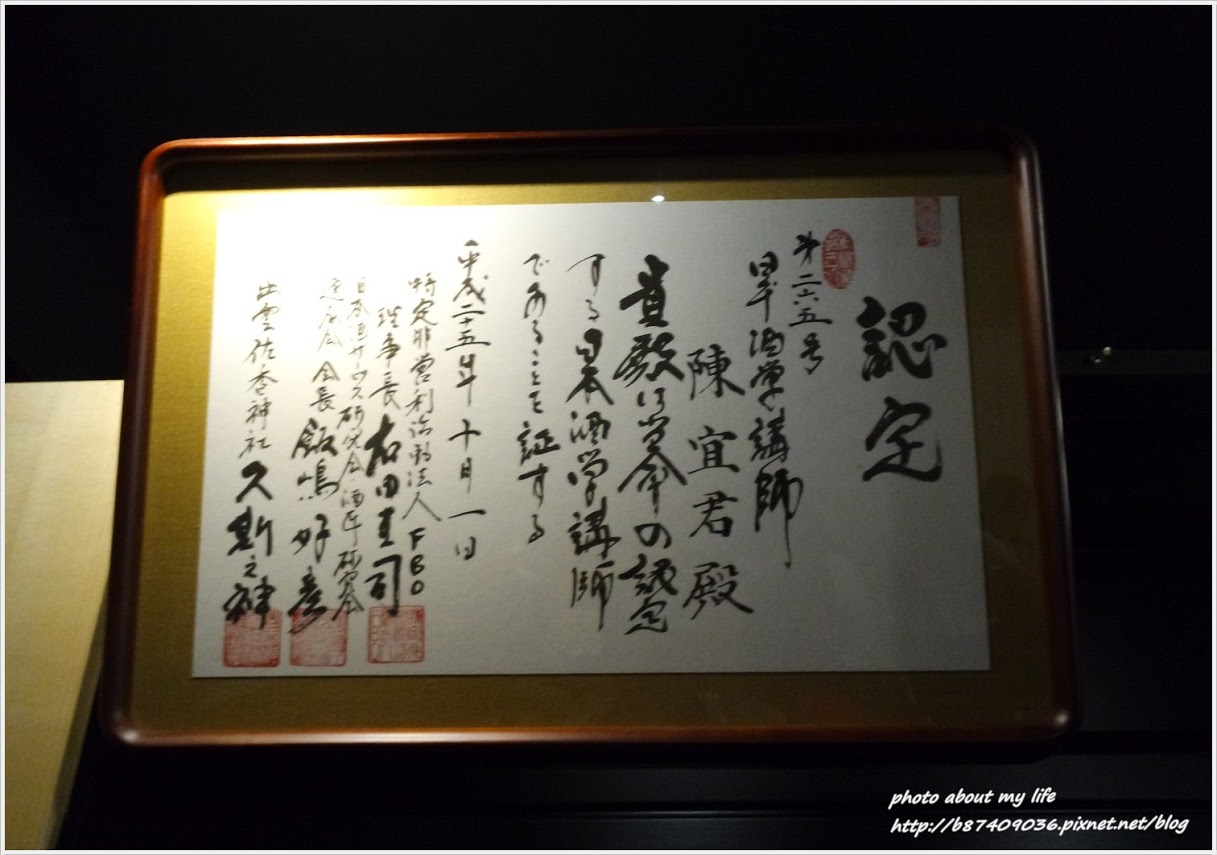 認定
第二六五号
日本酒学講師
陳宜君殿
貴殿は当会の認定
する日本酒学講師
であることを証する
平成二十五年十月一日
特定非営利活動法人FBO
理事長 右田圭司
日本酒サービス研究会・酒匠研究会
連合会 会長 飯嶋好彦
出雲佐香神社 久斯之神
photo about my life
http://b87409036.pixnet.net/blog